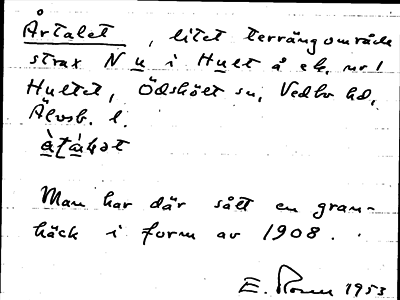 Årtalet, litet terrängområde
strax N u i Hult å ek. nr 1
Hultet, Ödskölt sn, Vedbo hd,
Älvsb. l.
Man har där sått en gran-
häck i form av 1908.
E. 1953